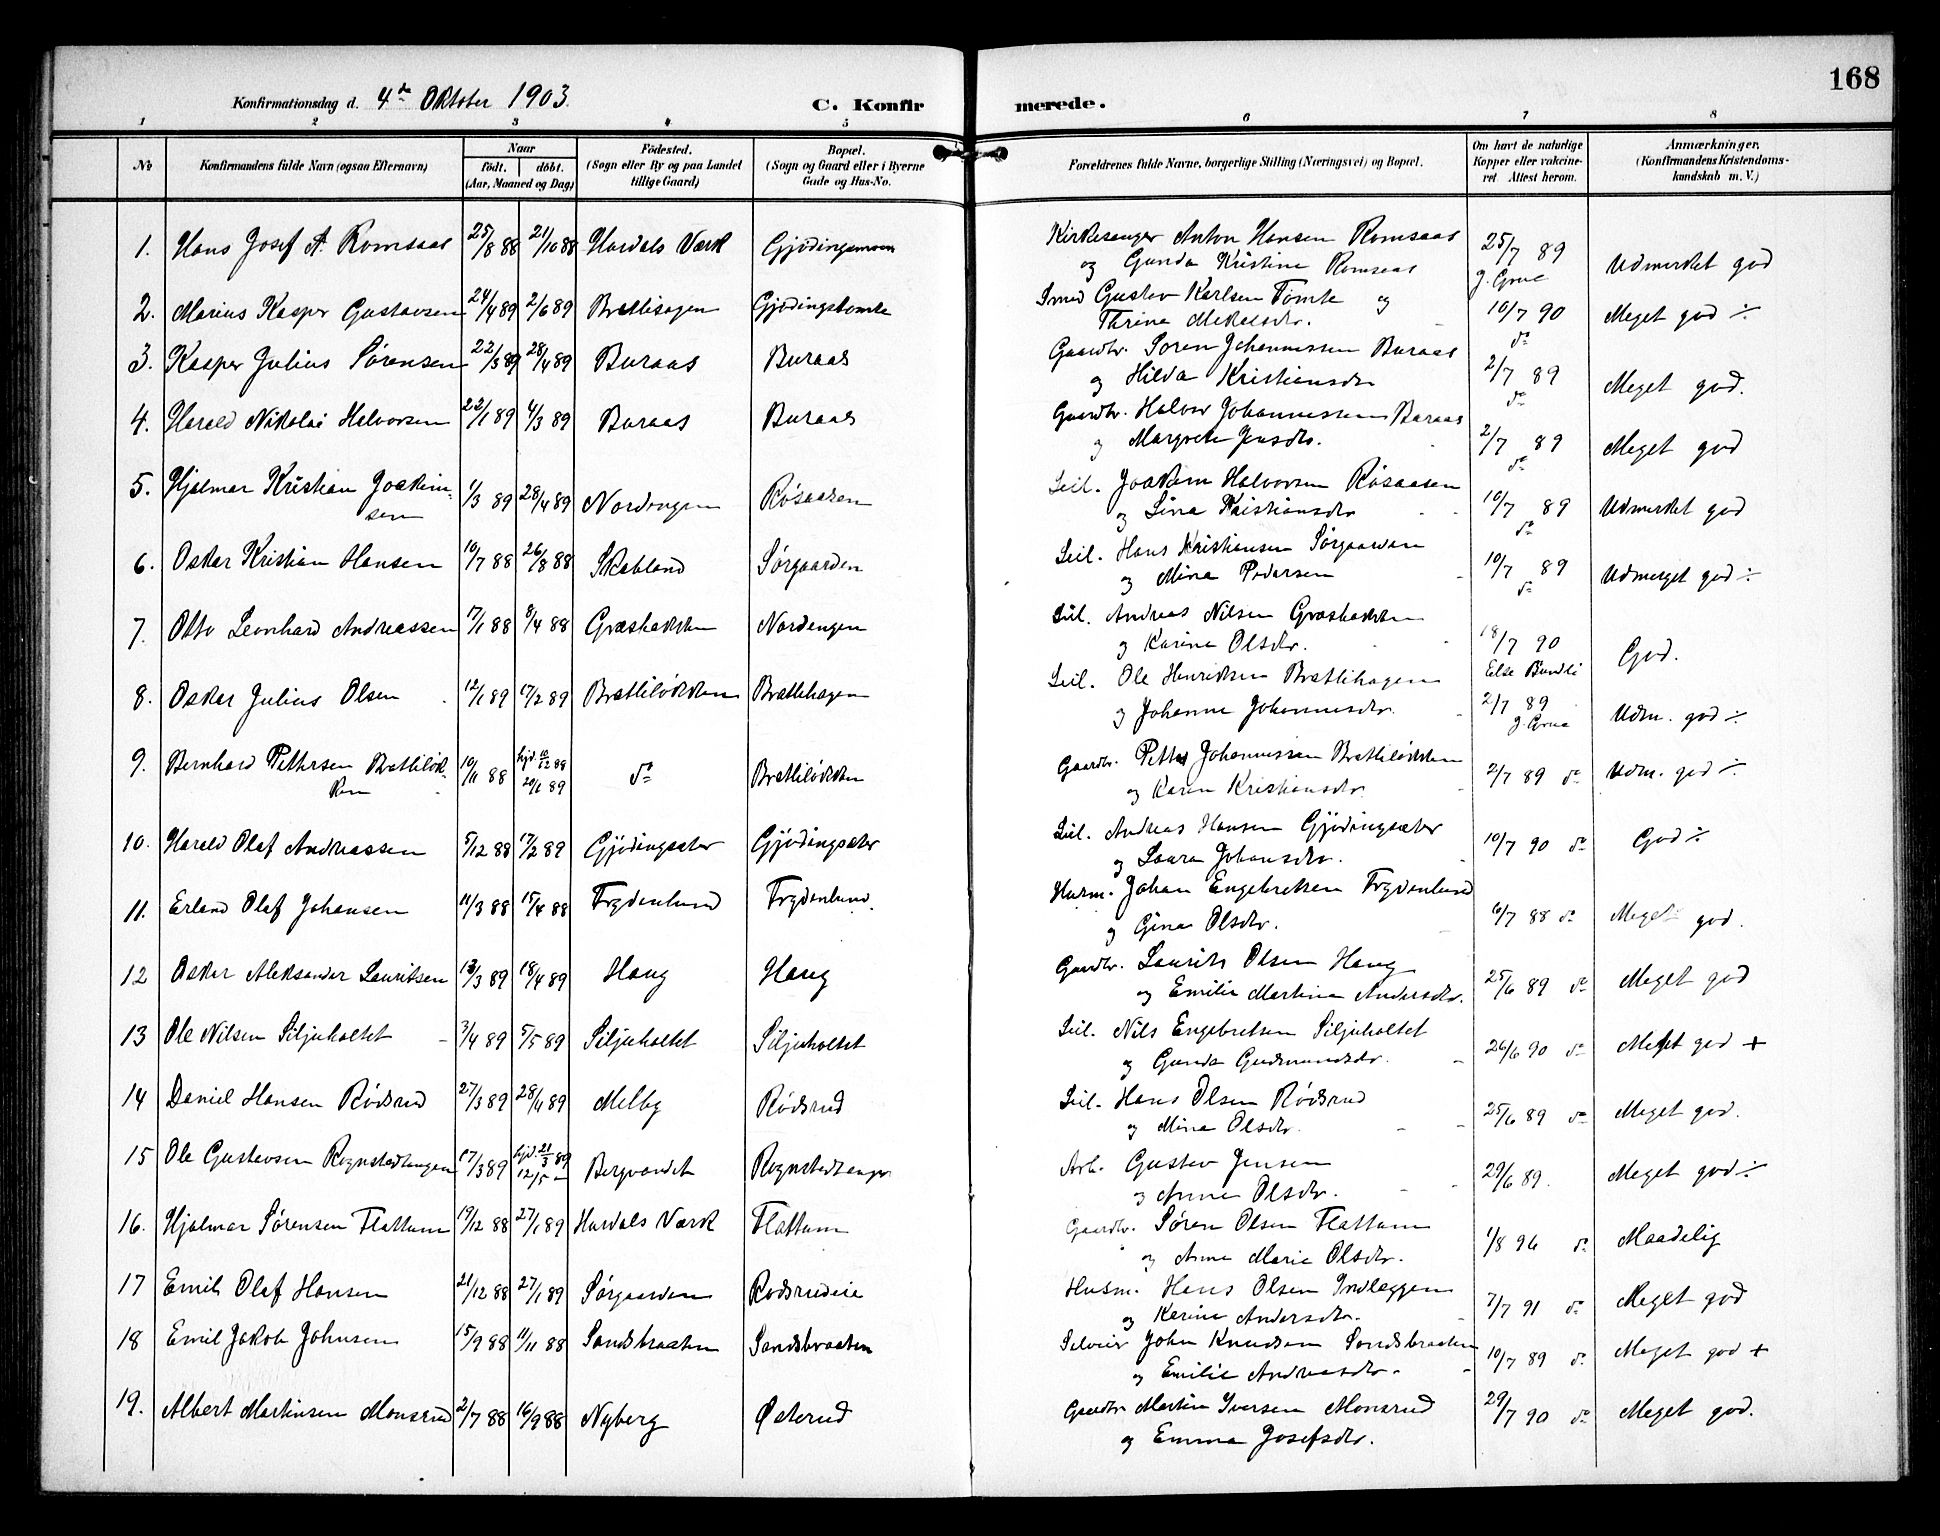 168
Konfirmationsdag d. 4de Oktober 1903. C. Konfirmerede.
1 2 3 4 5 6 7 8
No
Konfirmandens fulde Navn (ogsaa Efternavn)
Naar
födt. döbt.
(Aar, Maaned og Dag)
Födested.
(Sogn eller By og paa Landet
tillige Gaard)
Bopæl.
(Sogn og Gaard eller i Byerne
Gade og Hus-No.
Forældrenes fulde Navne, borgerlige Stilling (Næringsvei) og Bopæl.
Om havt de naturlige
Kopper eller vakcine-
ret Attest herom.
Anmærkninger.
(Konfirmandens Kristendoms-
kundskab m. V.)
1. Hans Josef A. Romsaas 25/8 88 21/10 88 Hurdals Værk Gjødingsmoen Kirkesanger Anton Hansen Romsaas 25/7 89 Udmerket god
og Gunda Kristine Romsaas J. Grue
2. Marius Kasper Gustavsen 24/4 89 2/6 89 Brættisagen Gjødingstomte Smed Gustav Karlsen Tømte og 10/7 90 Meget god ÷
Thrine Mikelsdtr. do
3. Kasper Julius Sørensen 22/3 89 28/4 89 Buraas Buraas Gaardbr. Søren Johannessen Buraas 2/7 89 Meget god.
og Hilda Kristiansdtr do
4. Harald Nikolai Halvorsen 22/1 89 4/3 89 Buraas Buraas Gaardbr. Halvor Johannessen Buraas 2/7 89 Meget god
og Margrete Jensdtr. do
5. Hjalmar Kristian Joakim- 1/3 89 28/4 89 Nordengen Røsaasen Leil. Joakim Halvorsen Røsaasen 10/7 89 Udmerket god
sen og Lina Kristiansdtr do
6. Oskar Kristian Hansen 10/7 88 26/8 88 Skabland Sørgaarden Leil. Hans Kristiansen Sørgaarden 10/7 89 Udmerget god ÷
og Mina Pedersen do
7. Otto Leonhard Andreassen 17/1 88 8/4 88 Græsbakken Nordengen Leil. Andreas Nilsen Græsbakken 18/7 90 God.
og Karine Olsdtr. Else Bundli
8. Oskar Julius Olsen 12/1 89 17/2 89 Brættiløkken Brættihagen Leil. Ole Henriksen Brættihagen 2/7 89 Udm. god ÷
og Johanne Johannesdtr. J. Grue
9. Bernhard Pettersen Brættiløk- 10/11 88 hjd. 10/12 88 do Brættiløkken Gaardbr. Petter Johannessen Brættiløkken 2/7 89 do Udm. god ÷
ken 20/1 89 og Karen Kristiansdtr.
10. Harald Olaf Andreassen 5/12 88 17/2 89 Gjødingsæter Gjødingsæter Leil. Andreas Hansen Gjødingsæter 10/7 90 do God ÷
og Laura Johansdtr.
11. Erland Olaf Johansen 11/3 88 15/4 88 Frydenlund Frydenlund. Husm. Johan Engebretsen Frydenlund 6/7 88 do Meget god.
og Gina Olsdtr.
12 Oskar Aleksander Lauritsen 13/3 89 18/4 89 Haug Haug Gaardbr. Laurits Olsen Haug 25/6 89 do Meget god
og Emilie Martina Andersdtr.
13 Ole Nilsen Siljuholtet 3/4 89 5/5 89 Siljuholtet Siljuholtet Leil. Nils Engebretsen Siljuholtet 26/6 90 do Meget god +
og Gunda Gudmundsdtr.
14 Daniel Hansen Rødsrud 27/3 89 28/4 89 Melby Rødsrud Leil. Hans Olsen Rødsrud 25/6 89 do Meget god.
og Mina Olsdtr.
15 Ole Gustavsen Rognstadtangen 17/3 89 hjd. 21/3 89 Bergvandet Rognstadtangen Arb. Gustav Jensen 29/6 89. Meget god ÷
12/5 – og Anne Olsdtr.
16. Hjalmar Sørensen Flattum 19/12 88 27/1 89 Hurdals Værk Flattum Gaardbr. Søren Olsen Flattum 1/8 96 do Maadelig
og Anne Marie Olsdtr.
17 Emil Olaf Hansen 21/12 88 27/1 89 Sørgaarden Rødsrudeie Husm. Hans Olsen Indlæggen 7/7 91 do Meget god
og Karine Andersdtr.
18 Emil Jakob Johnsen 15/9 88 11/11 88 Sandsbraaten Sandsbraaten Selveier John Knudsen Sandsbraaten 10/7 89 do Meget god +
og Emilie Andreasdtr.
19. Albert Martinsen Monsrud 2/7 88 16/9 88 Nyberg Østerud Gaardbr Martin Iversen Monsrud 29/7 90 do Meget god.
og Emma Josefsdtr.